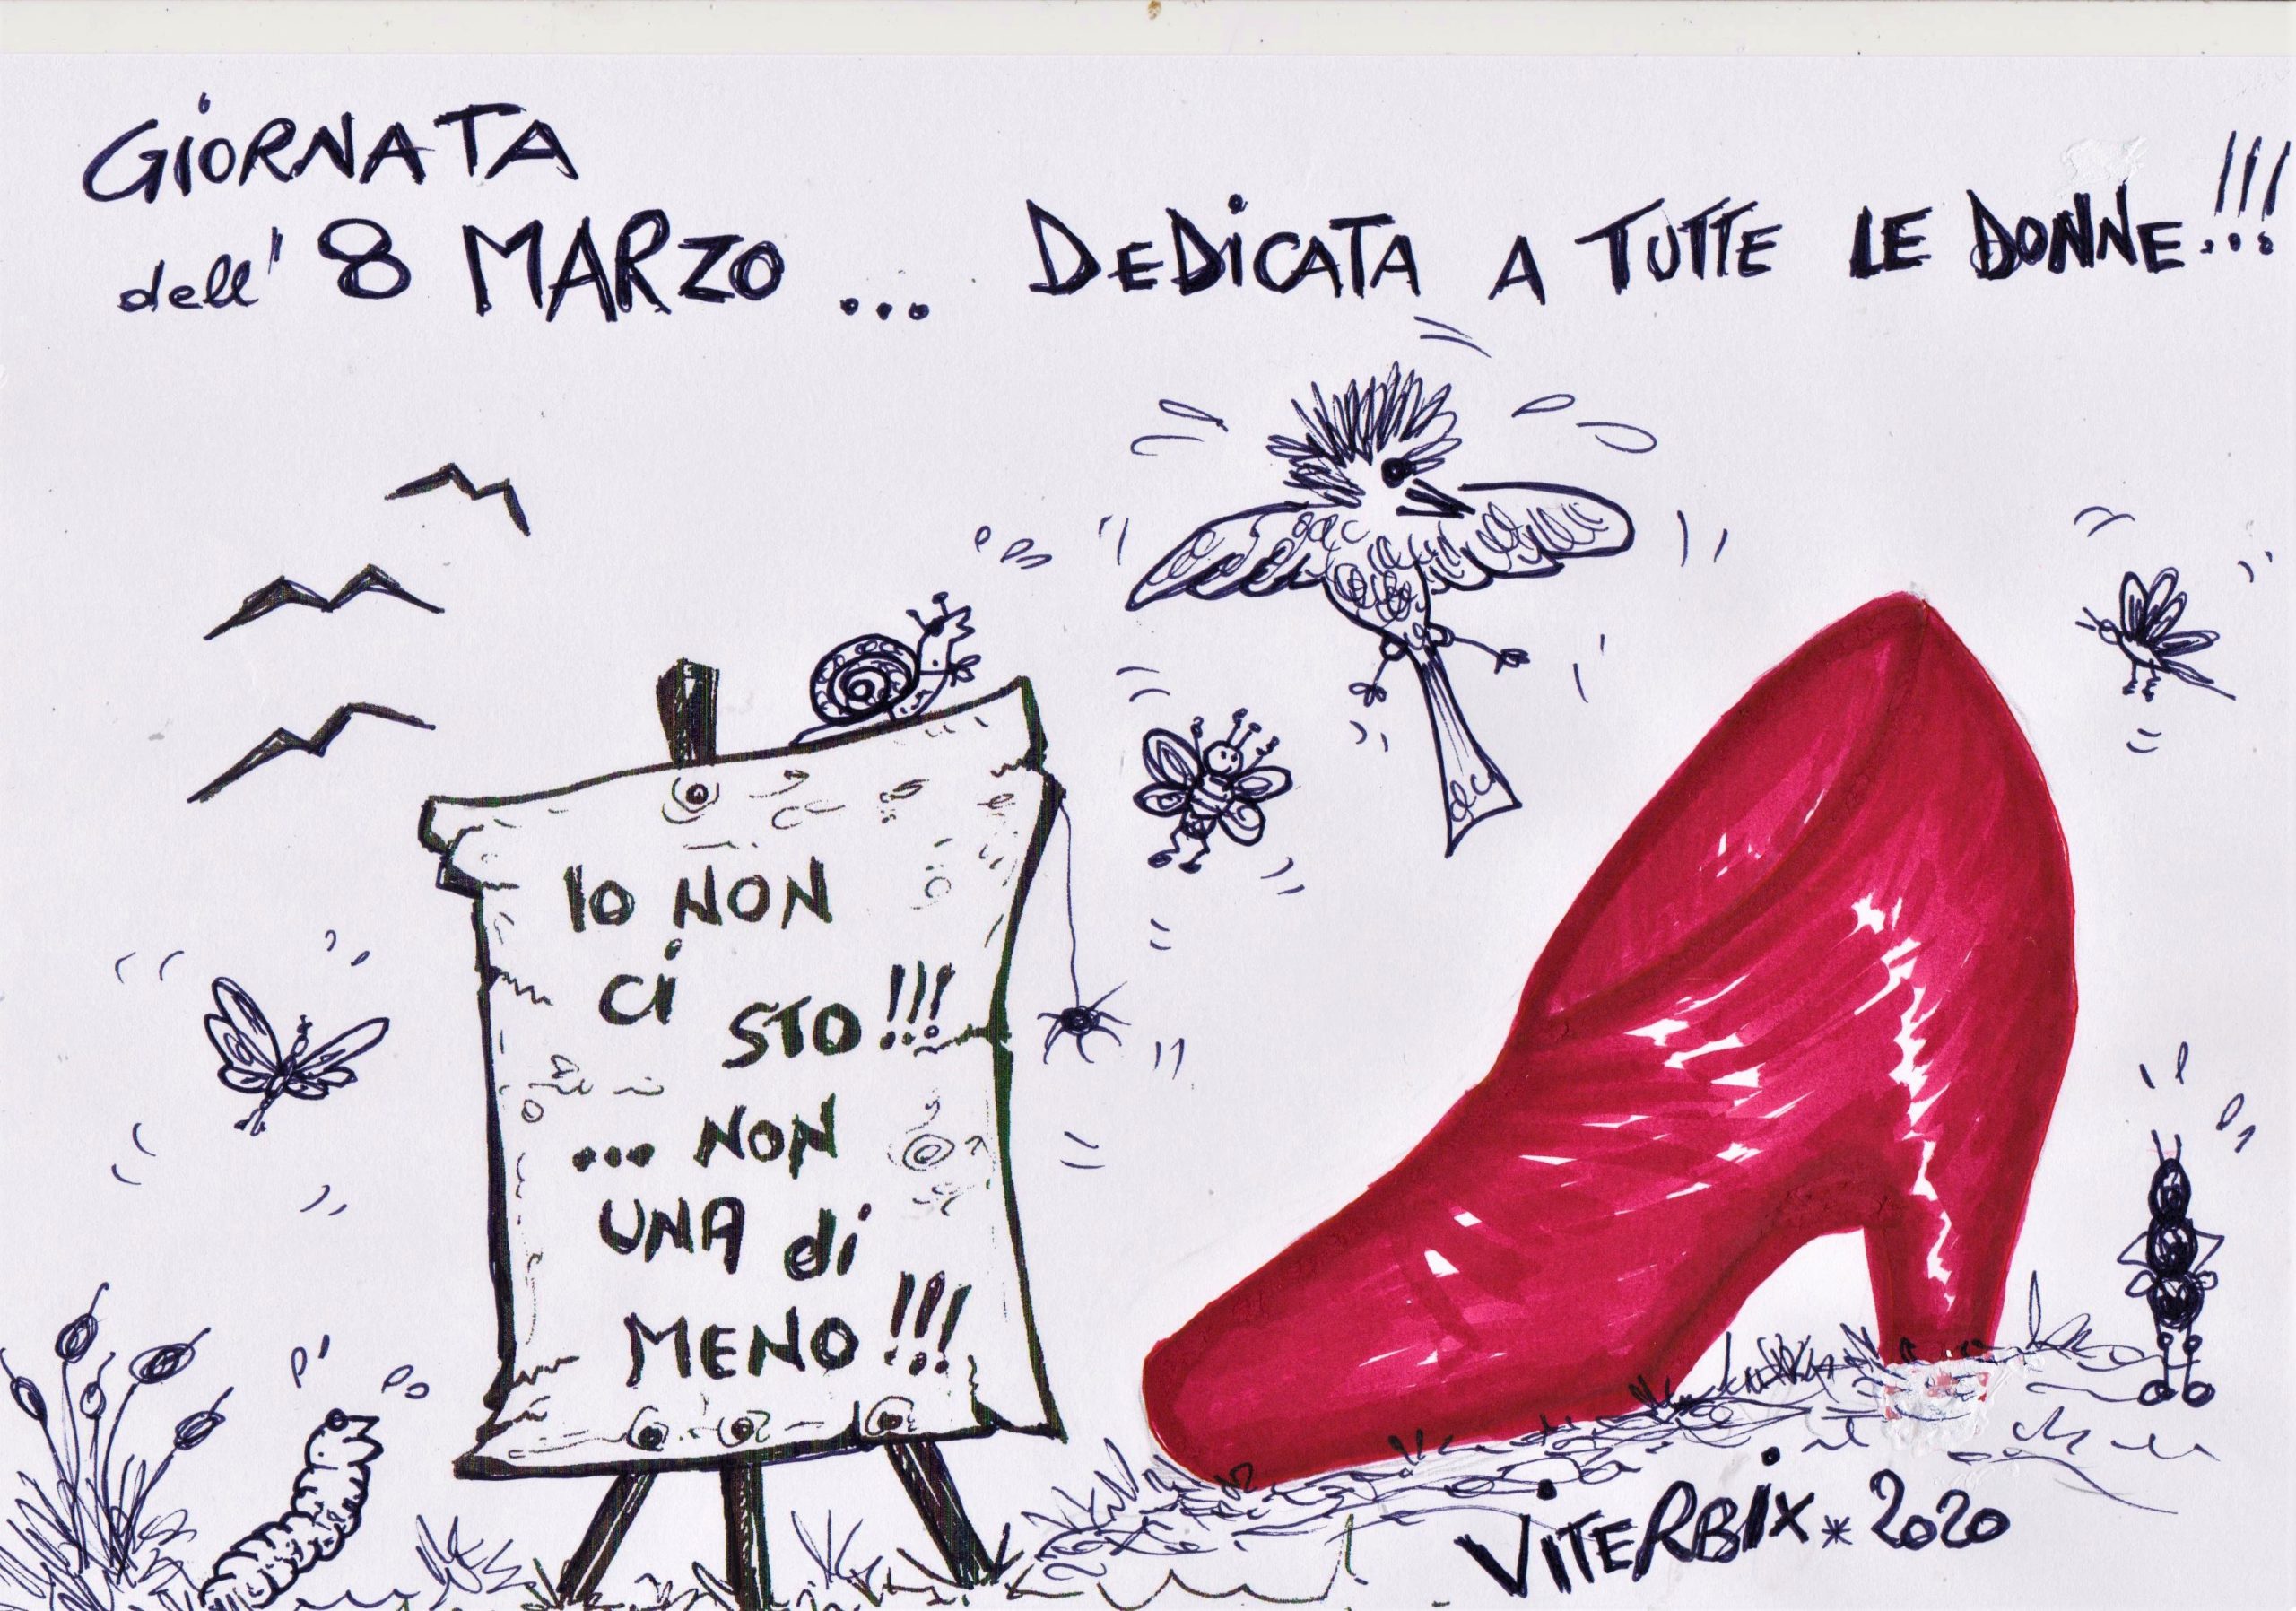 GiORNATA
dell' 8 MARZO ... DEDiCATA A TUTTE LE DONNE!!!
IO NON
Ci STO!!!
... NON
UNA di
MENO!!!
ViTERBiX * 2020